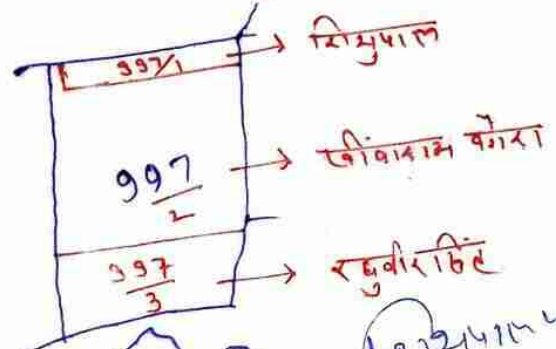 997/1 → शिशुपाल
997/2 → खींवाराम वगेरा
997/3 → रघुवीर सिंह